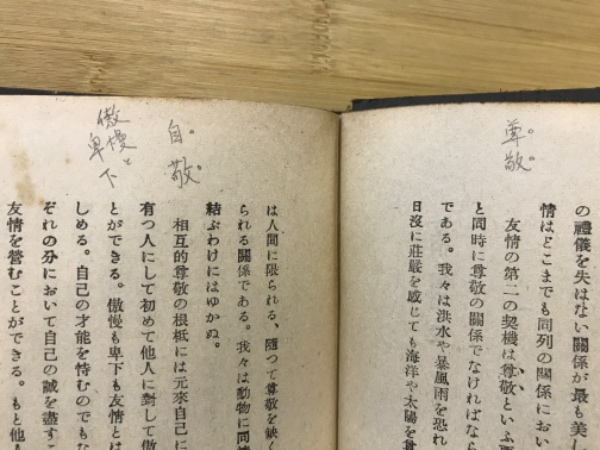 尊。敬。
の禮儀を失はない關係が最も美し
情はどこまでも同列の關係におい
友情の第二の契機は尊敬といふ
と同時に尊敬の關係でなければなら
である。我々は洪水や暴風雨を恐れ
日沒に莊嚴を感じても海洋や太陽を
自。敬。
傲慢と
卑下
は人間に限られる、隨つて尊敬を缺く
られる關係である。我々は動物に同
結ぶわけにはゆかぬ。
相互的尊敬の根柢には元來自己に
有つ人にして初めて他人に對して
とができる。傲慢も卑下も友情とは
しめる。自己の才能を恃むのでもな
ぞれの分において自己の誠を盡すこ
友情を營むことができる。もと他